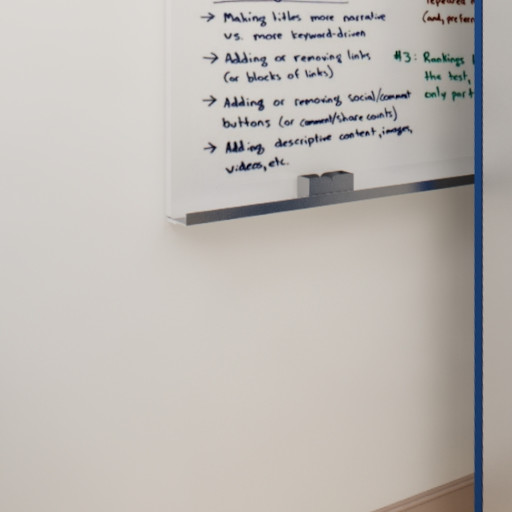 → Making titles more narrative
vs. more keyword-driven
→ Adding or removing links
(or blocks of links)
→ Adding or removing social/comment
buttons (or comment/share counts)
→ Adding descriptive content, images,
videos, etc.
(and,
#3: Rankings
the test,
only